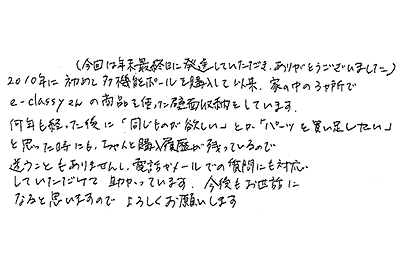 (今回は年末最終日に発送していただき、ありがとうございました。)
2010年に初めて多機能ポールを購入して以来、家の中の3ヶ所で
e-classyさんの商品を使った壁面収納をしています。
何年も経った後に「同じものが欲しい」とか「パーツを買い足したい」
と思った時にも、ちゃんと購入履歴が残っているので
迷うこともありませんし、電話やメールでの質問にも対応
していただけて助かっています。今後もお世話に
なると思いますのでよろしくお願いします